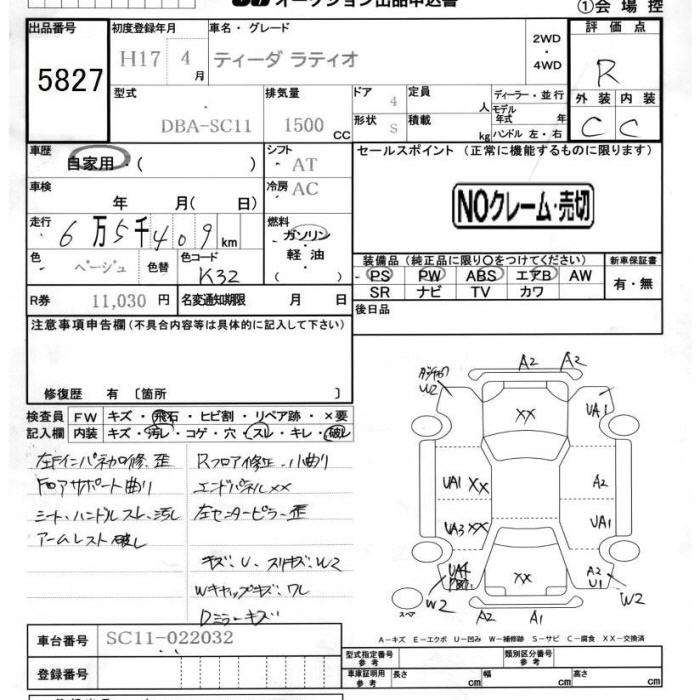 オークション出品申込書
①会場控
出品番号
5827
初度登録年月
H17 4月
車名・グレード
ティーダ ラティオ
2WD
・
4WD
評価点
R
型式
DBA-SC11
排気量
1500 CC
ドア 4
形状 S
定員 人
積載 kg
ディーラー・並行
モデル年式 年
ハンドル 左・右
外装 内装
C C
車歴
自家用・( )
シフト AT
セールスポイント (正常に機能するものに限ります)
車検
年 月( 日)
冷房 AC
NOクレーム・売切
走行
6万5千409km
燃料
ガソリン
軽油
( )
色
ベージュ
色替
色コード
K32
装備品(純正品に限り○をつけてください)
新車保証書
PS PW ABS エアB AW
SR ナビ TV カワ
有・無
R券 11,030円
名変通知期限 月 日
後日品
注意事項申告欄(不具合内容等は具体的に記入して下さい)
修復歴 有 〔箇所 〕
検査員
記入欄
FW キズ・飛石・ヒビ割・リペア跡・×要
内装 キズ・汚れ・コゲ・穴・スレ・キレ・破れ
フロアサポート曲り
シート、ハンドルスレ、汚れ
アームレスト破れ
Rフロア修正、小曲り
エンドパネルXX
左センターピラー歪
キズ、U、スリキズ、W2
Wキャップキズ、ワレ
Dミラーキズ
A2 A2
W2
XX
UA1
UA1 XX
A2
UA3 XX
UA1
XX
A2
U1
W2
W2
スペア
A2 A1
A-キズ E-エクボ U-凹み W-補修跡 S-サビ C-腐食 XX-交換済
車台番号
SC11-022032
登録番号
型式指定番号
参考
類別区分番号
参考
車庫証明用
参考
長さ cm
幅 cm
高さ cm